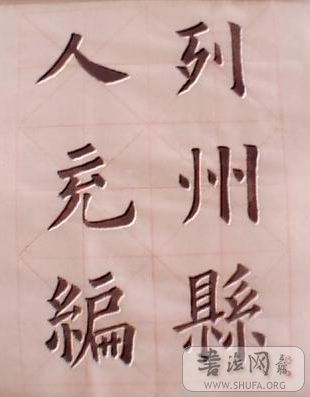 列州縣
人充編
書法网
WWW.SHUFA.ORG